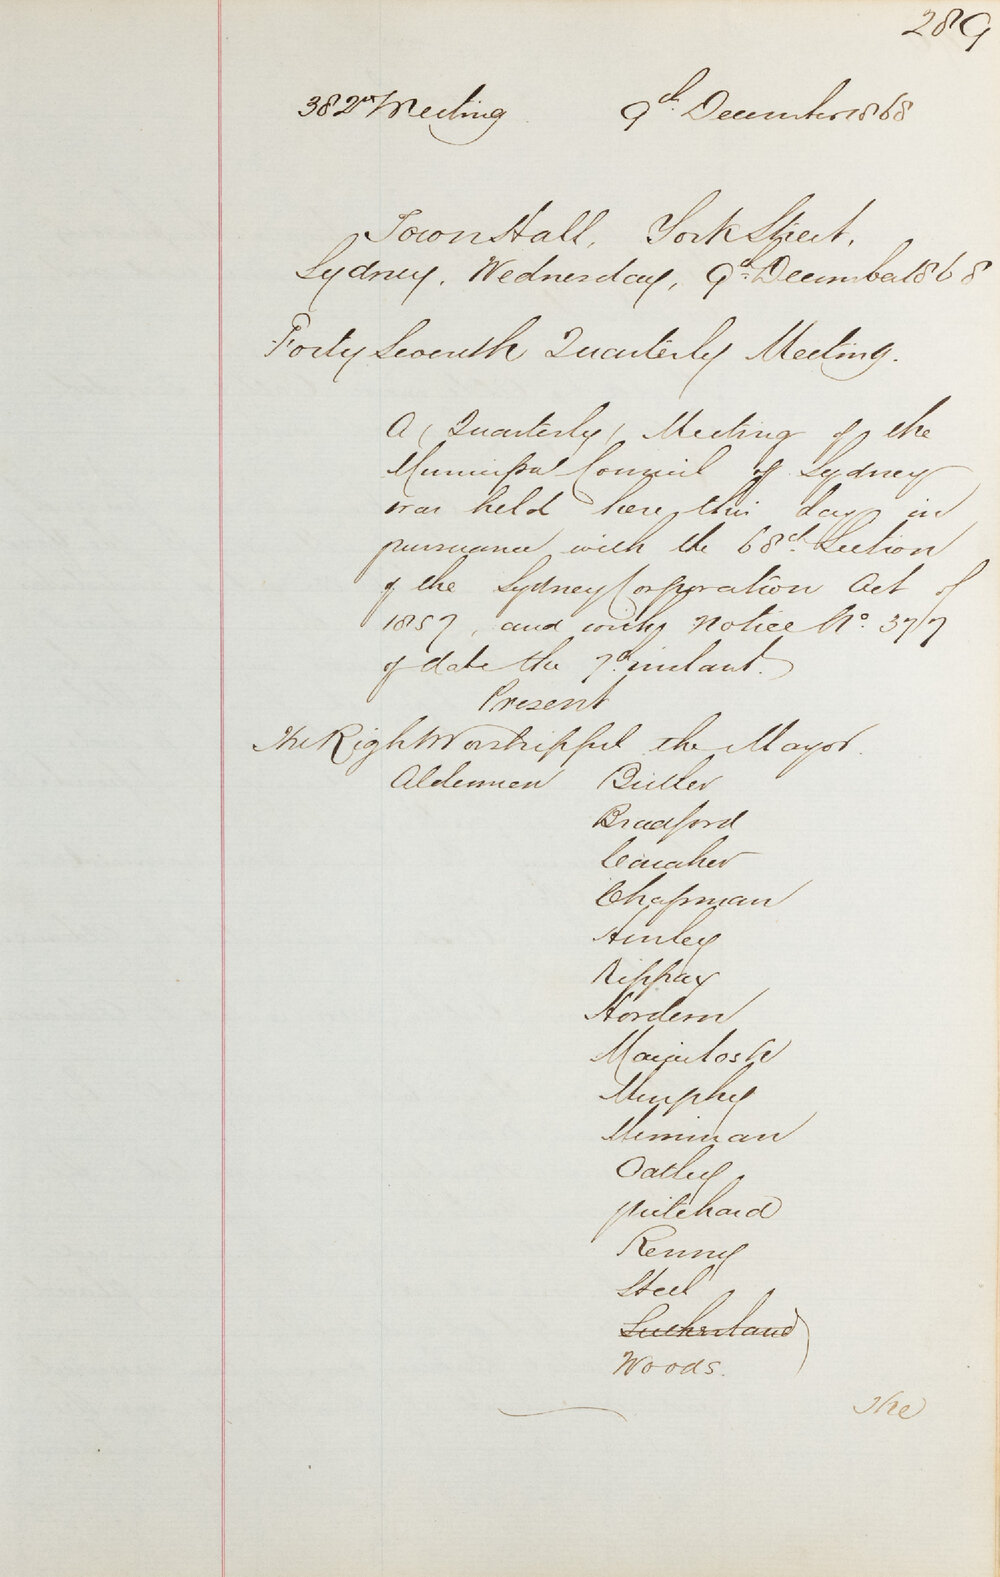 289
382nd Meeting 9th December 1868
Town Hall, York Street,
Sydney, Wednesday, 9th December 1868
Forty Seventh Quarterly Meeting.
A (Quarterly) Meeting of the
Municipal Council of Sydney
was held here this day in
pursuance with the 68th Section
of the Sydney Corporation Act of
1857, and with notice No. 377
of date the 7th instant.
Present
The Right Worshipful the Mayor.
Aldermen Butler
Bradford
Caraher
Chapman
Hurley
Kippax
Hordern
Macintosh
Murphy
Merriman
Oatley
Pritchard
Renny
Steel
Sutherland
Woods.
The